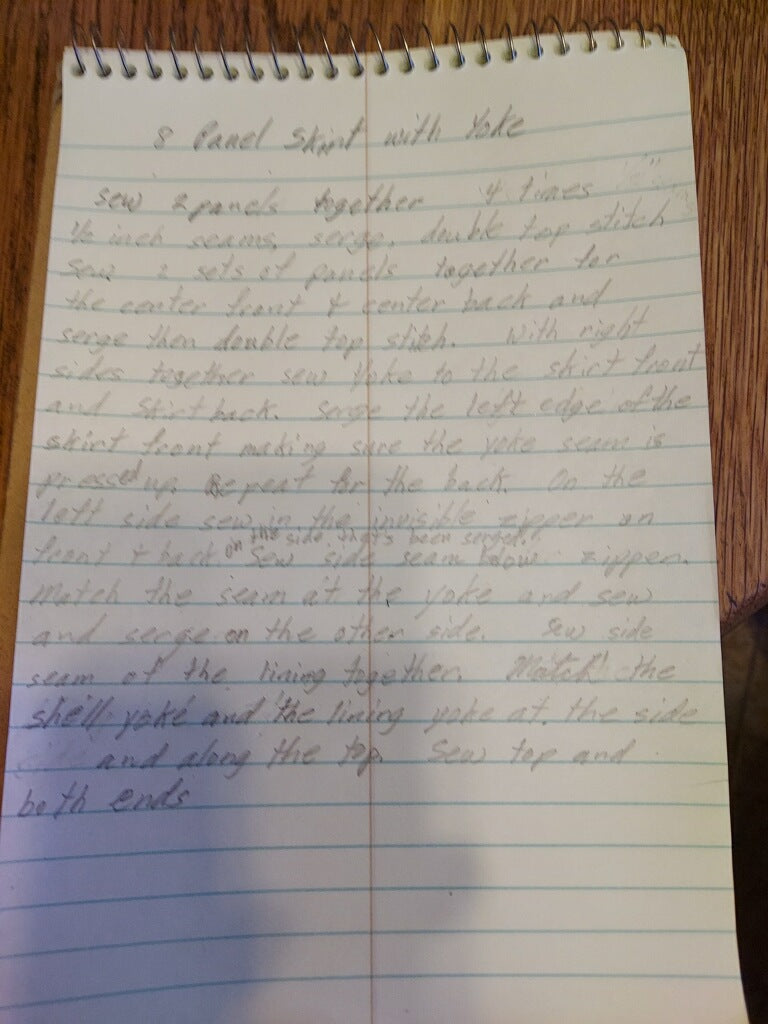 8 Panel Skirt with Yoke
Sew 2 panels together 4 times
1/2 inch seams, serge, double top stitch
Sew 2 sets of panels together for
the center front & center back and
serge then double top stitch. With right
sides together sew Yoke to the skirt front
and skirt back. Serge the left edge of the
skirt front making sure the yoke seam is
pressed up. Repeat for the back. On the
left side sew in the invisible zipper on
on the side that's been serged.
front & back. Sew side seam below zipper.
Match the seam at the yoke and sew
and serge on the other side. Sew side
seam of the lining together. Match the
shell yoke and the lining yoke at the side
and along the top. Sew top and
both ends